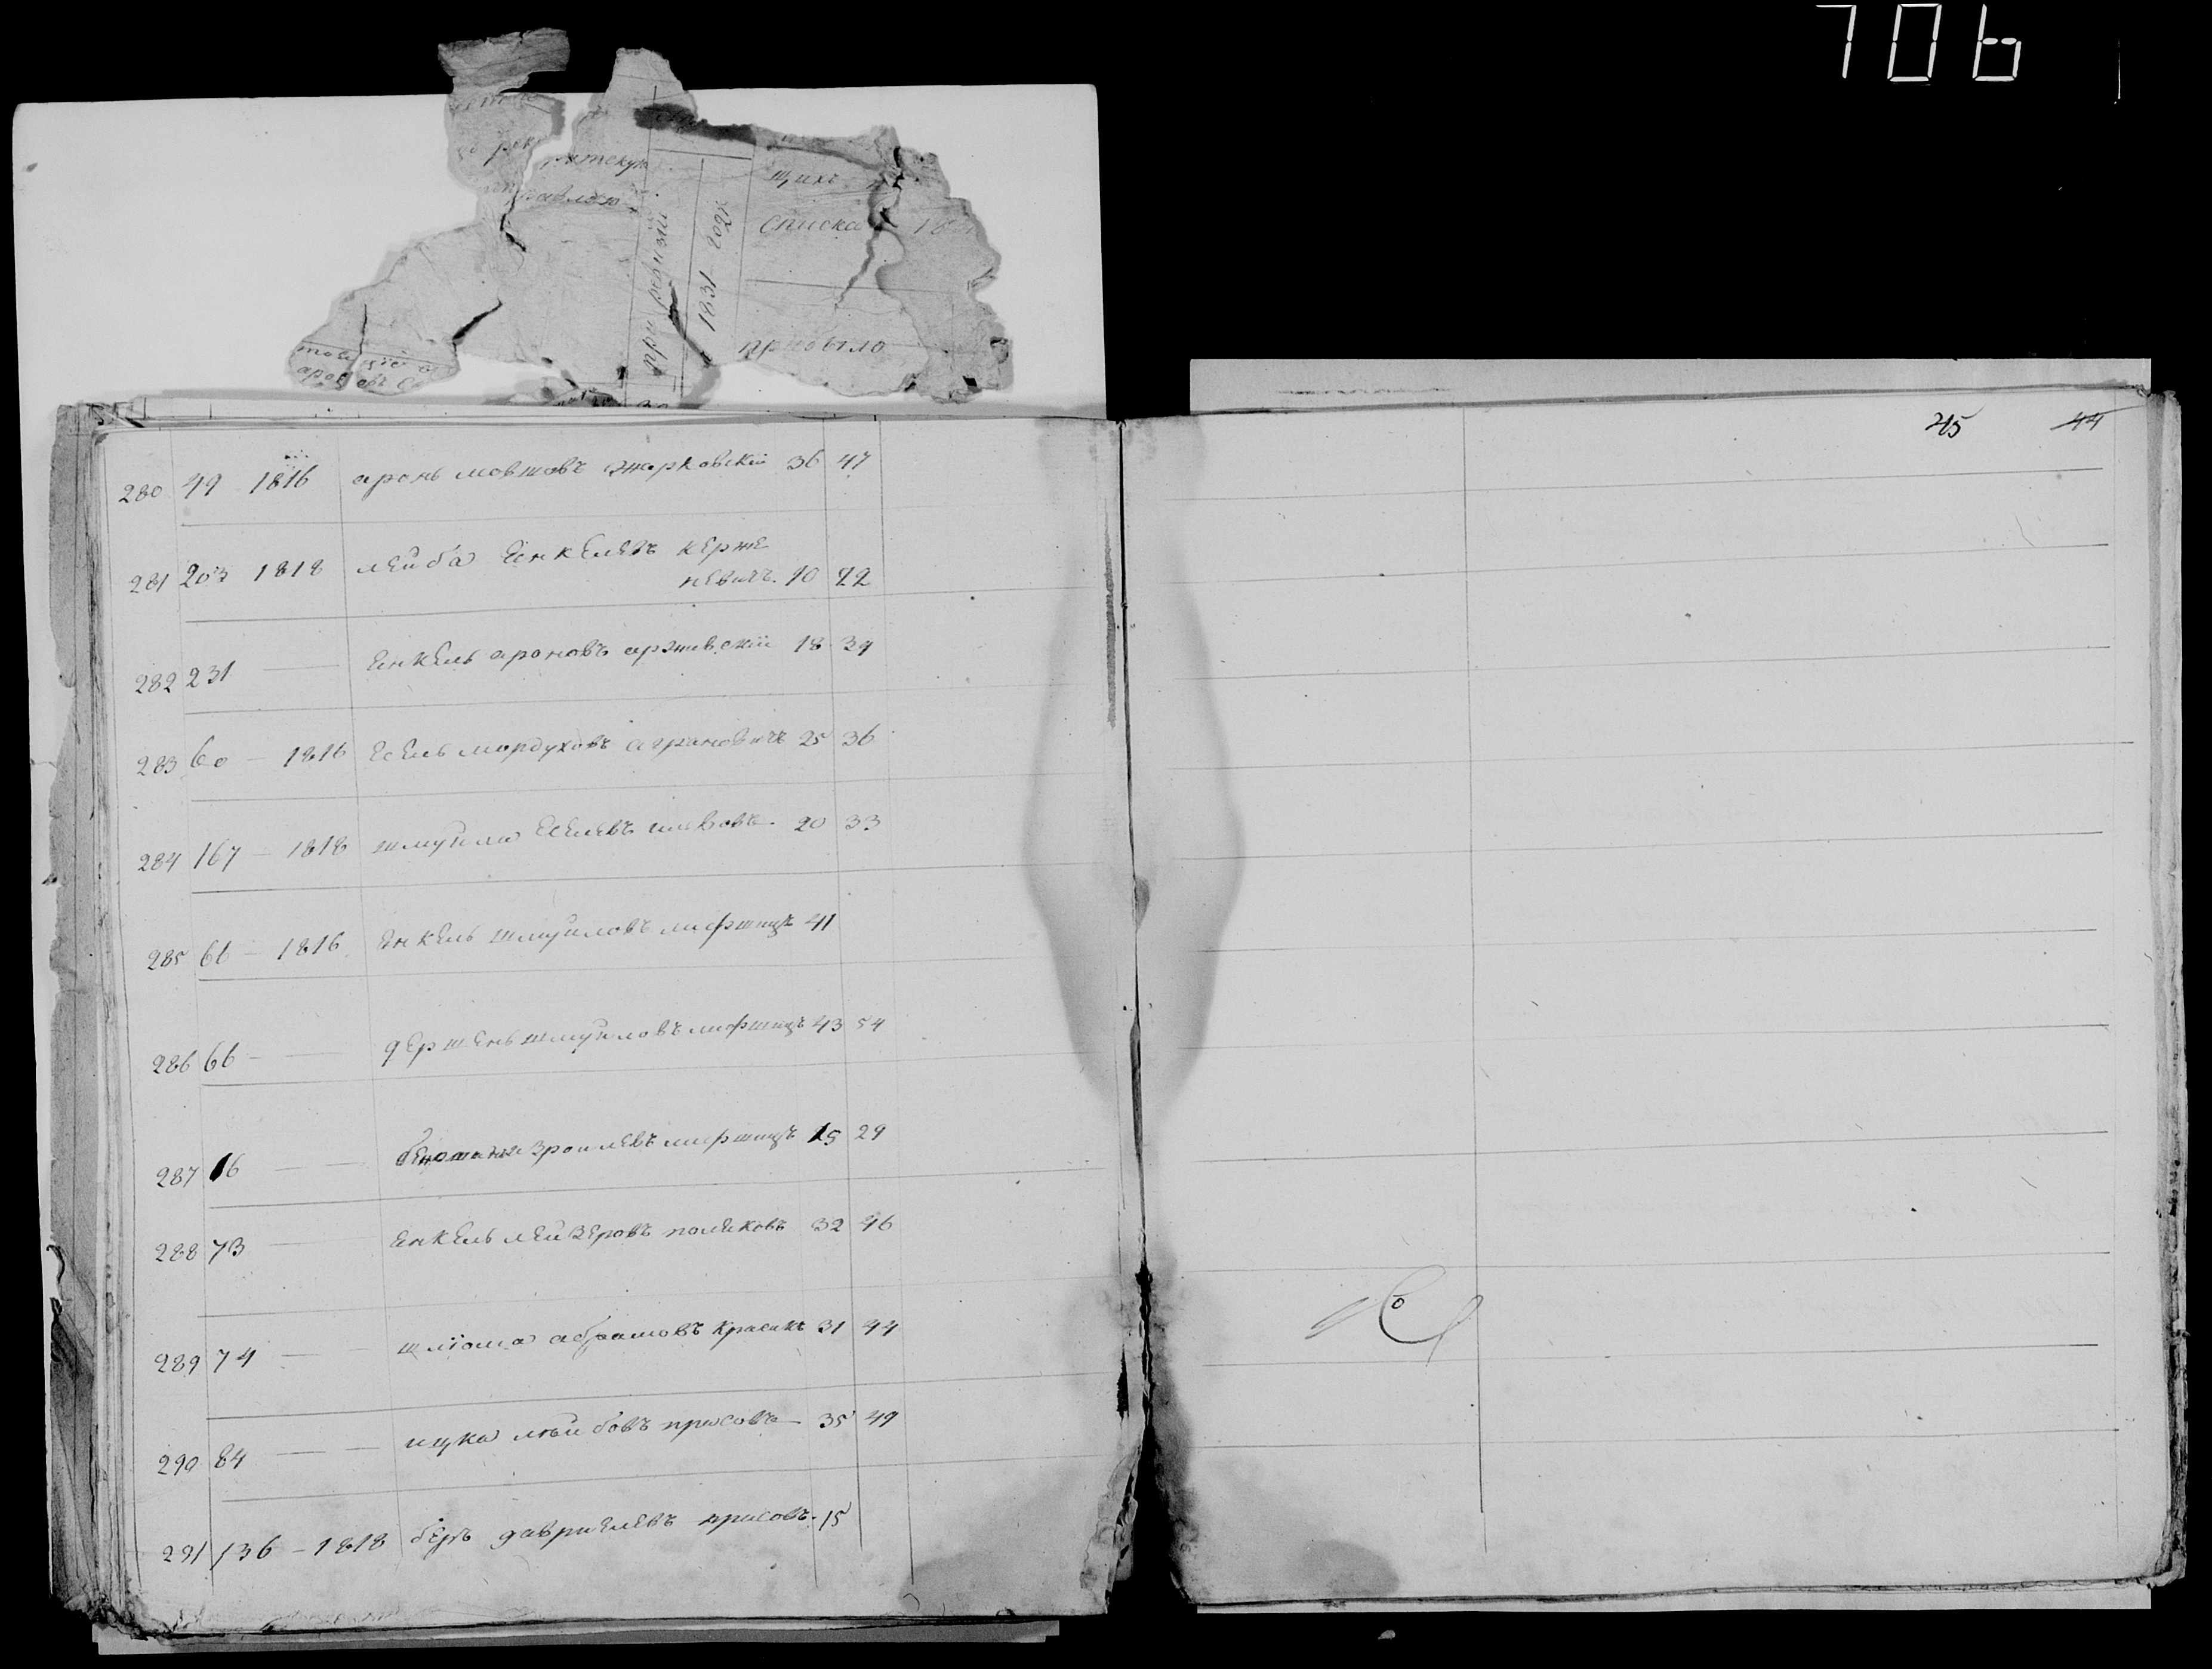 706
ратскую
щихъ
списка
при ревизіи
1831 года
прибыло
45 44
280 49 1816 аронь мовшовъ 36 47
281 203 1818 лейба Енкелевъ керже
невичъ 10 22
282 231 — Енкель ароновъ аршавскій 18 29
283 60 — 1816 Есель мордуховъ аграновичъ 25 36
284 167 — 1818 шмуила Еселевъ 20 33
285 66 — 1816 Енкель шмуиловъ лифшицъ 41
286 66 — — гершень шмуиловъ лифшицъ 43 54
287 16 — — зроилевъ лифшицъ 15 29
288 73 — Енкель лейзеровъ поляковъ 32 46
289 74 — — шліома абрамовъ красикъ 31 44
290 84 — — ицка лейбовъ прусовъ — 35 49
291 136 — 1818 беръ гавриелевъ прусовъ. 15